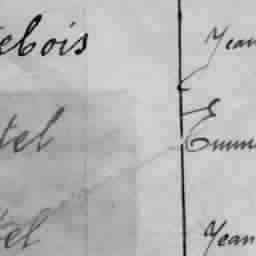 ebois Jean
tel Emm
tel Jean